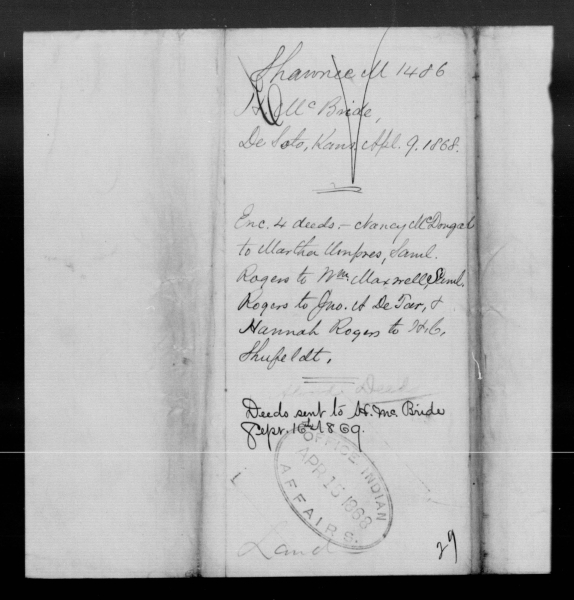 Shawnee M 1486
H. McBride,
De Soto, Kans. Apl. 9. 1868.
Enc. 4 deeds, - Nancy McDougal
to Martha Umpres, Saml.
Rogers to Wm. Maxwell, Saml.
Rogers to Jno. A De Tar, &
Hannah Rogers to H. C.
Shufeldt.
Deed
Deeds sent to H. McBride
Sept. 16th 1869.
OFFICE INDIAN
APR 15 1868
AFFAIRS.
Land
29